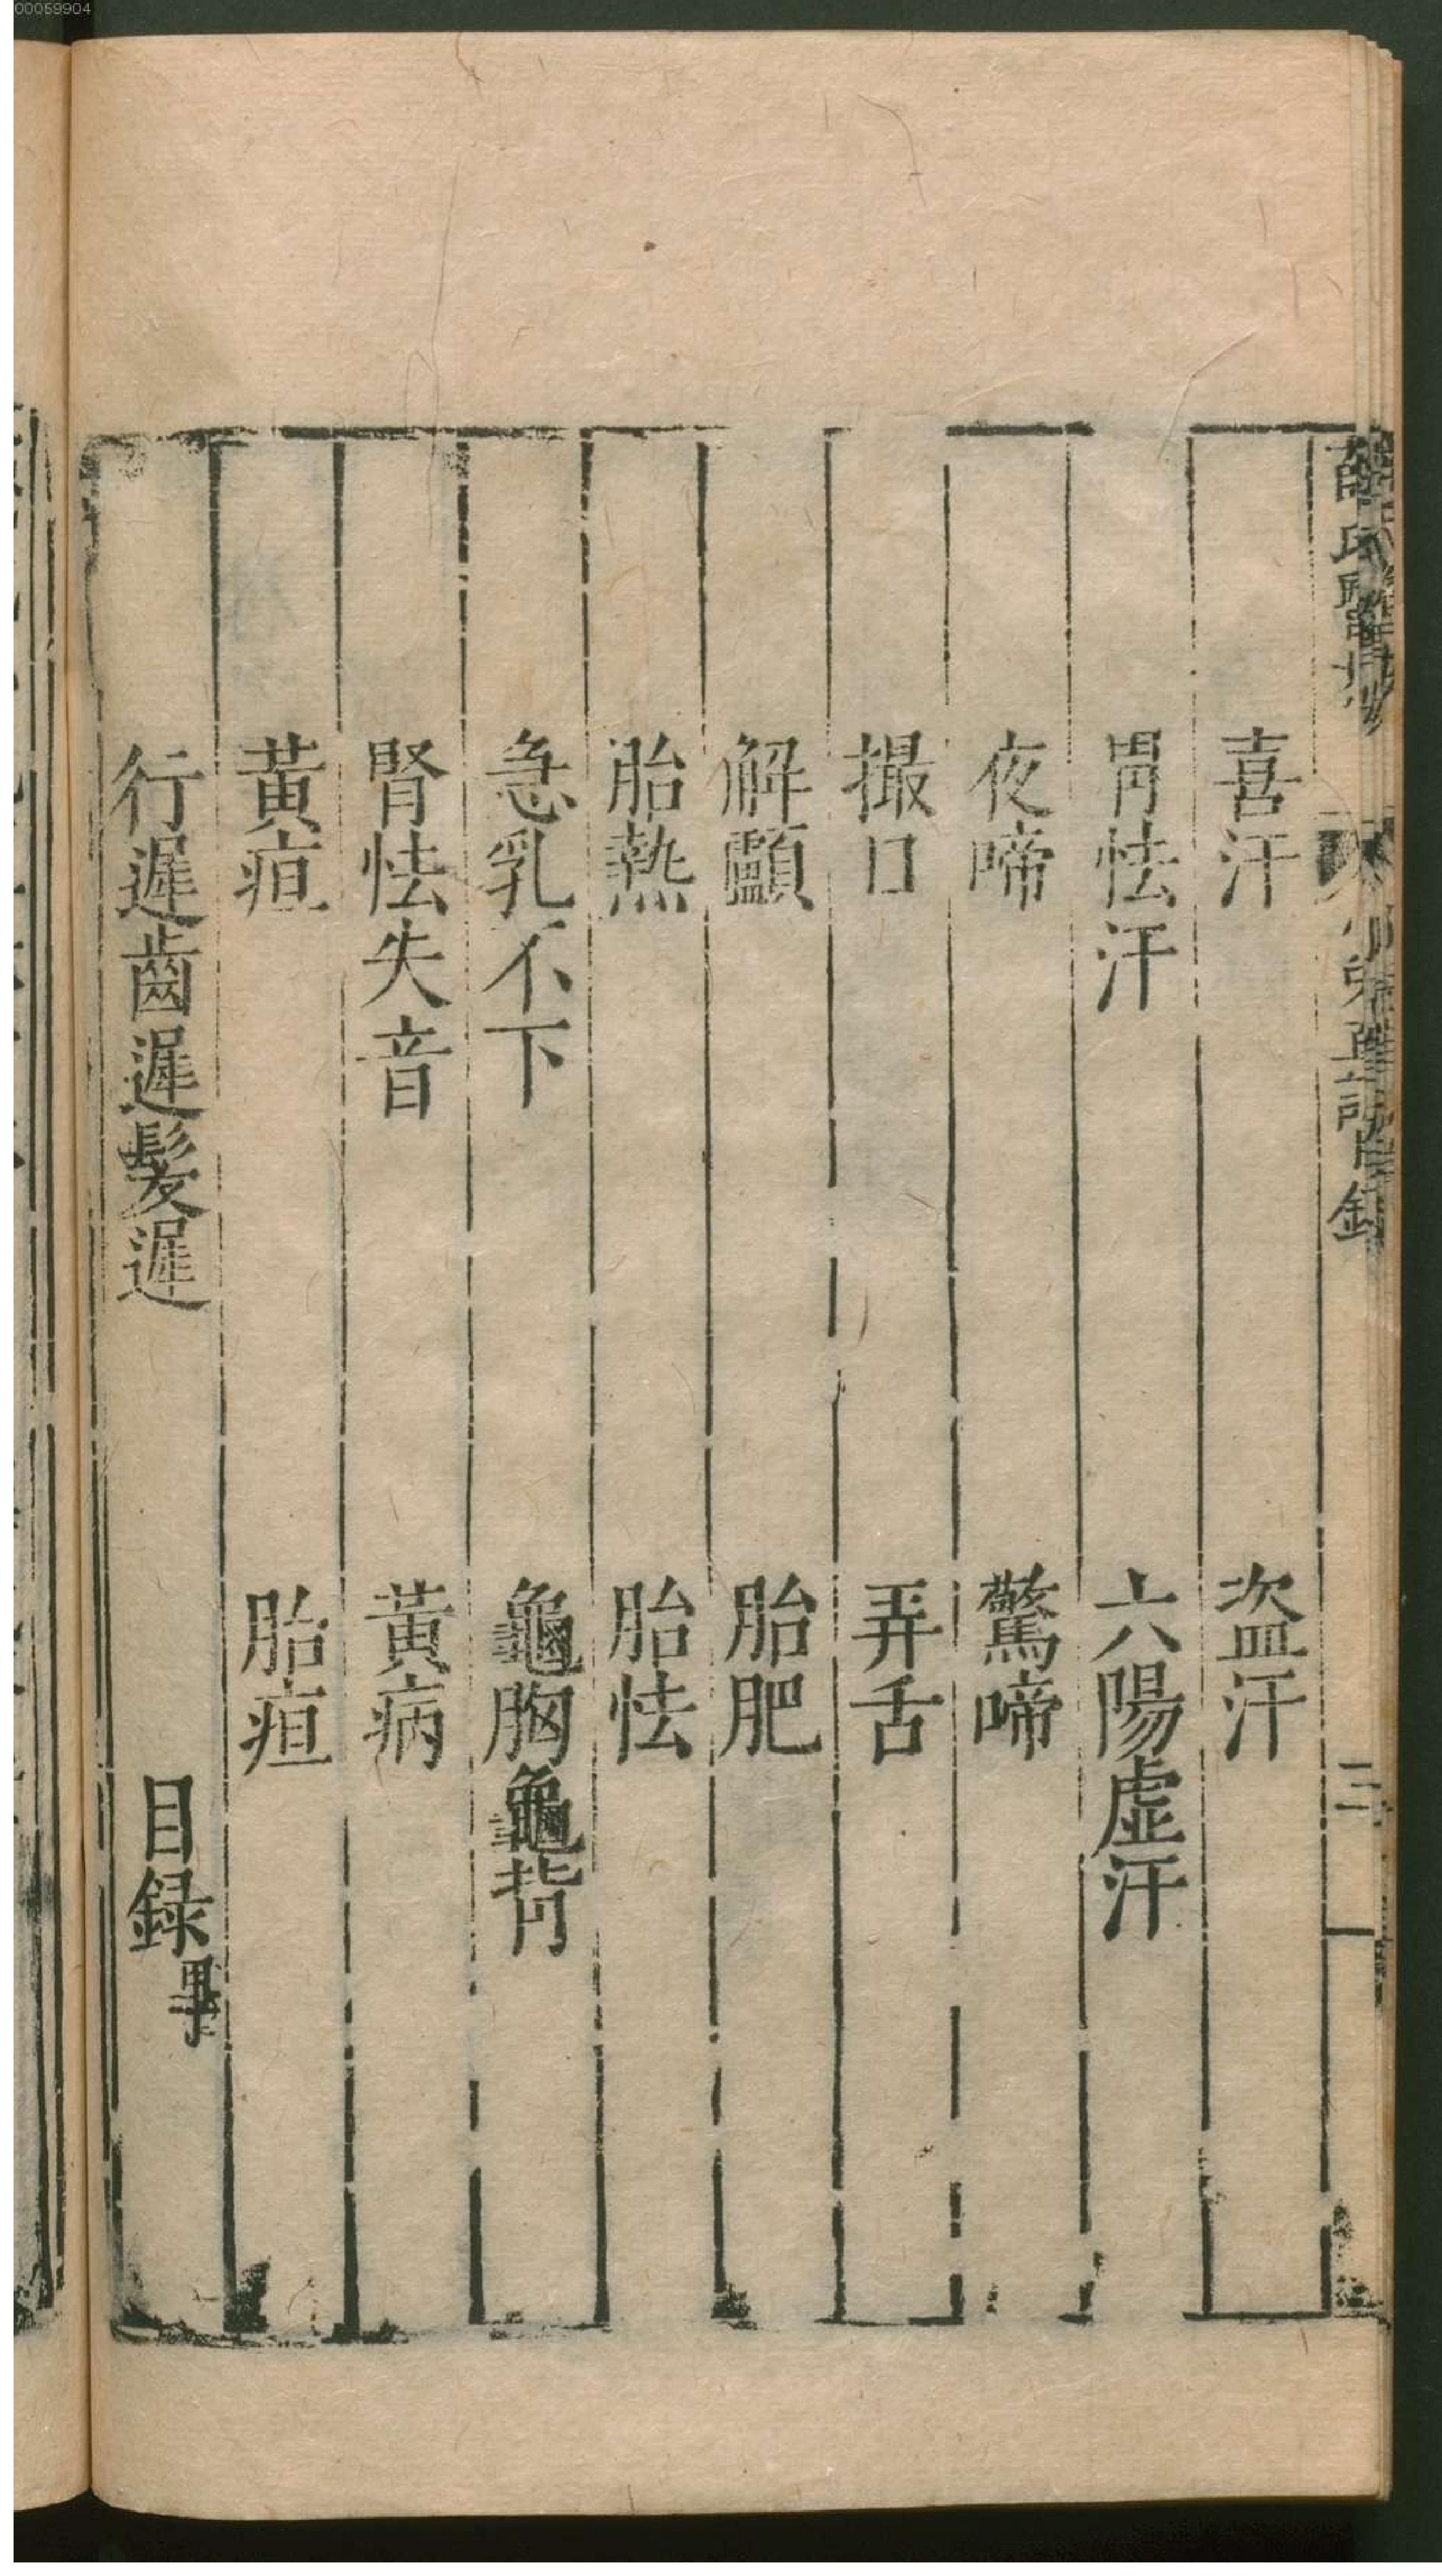 00059904
喜汗 盗汗
胃怯汗 六陽虛汗
夜啼 驚啼
撮口 弄舌
解顱 胎肥
胎熱 胎怯
急乳不下 龜胸龜背
腎怯失音 黃病
黃疸 胎疸
行遲齒遲髮遲 目録畢